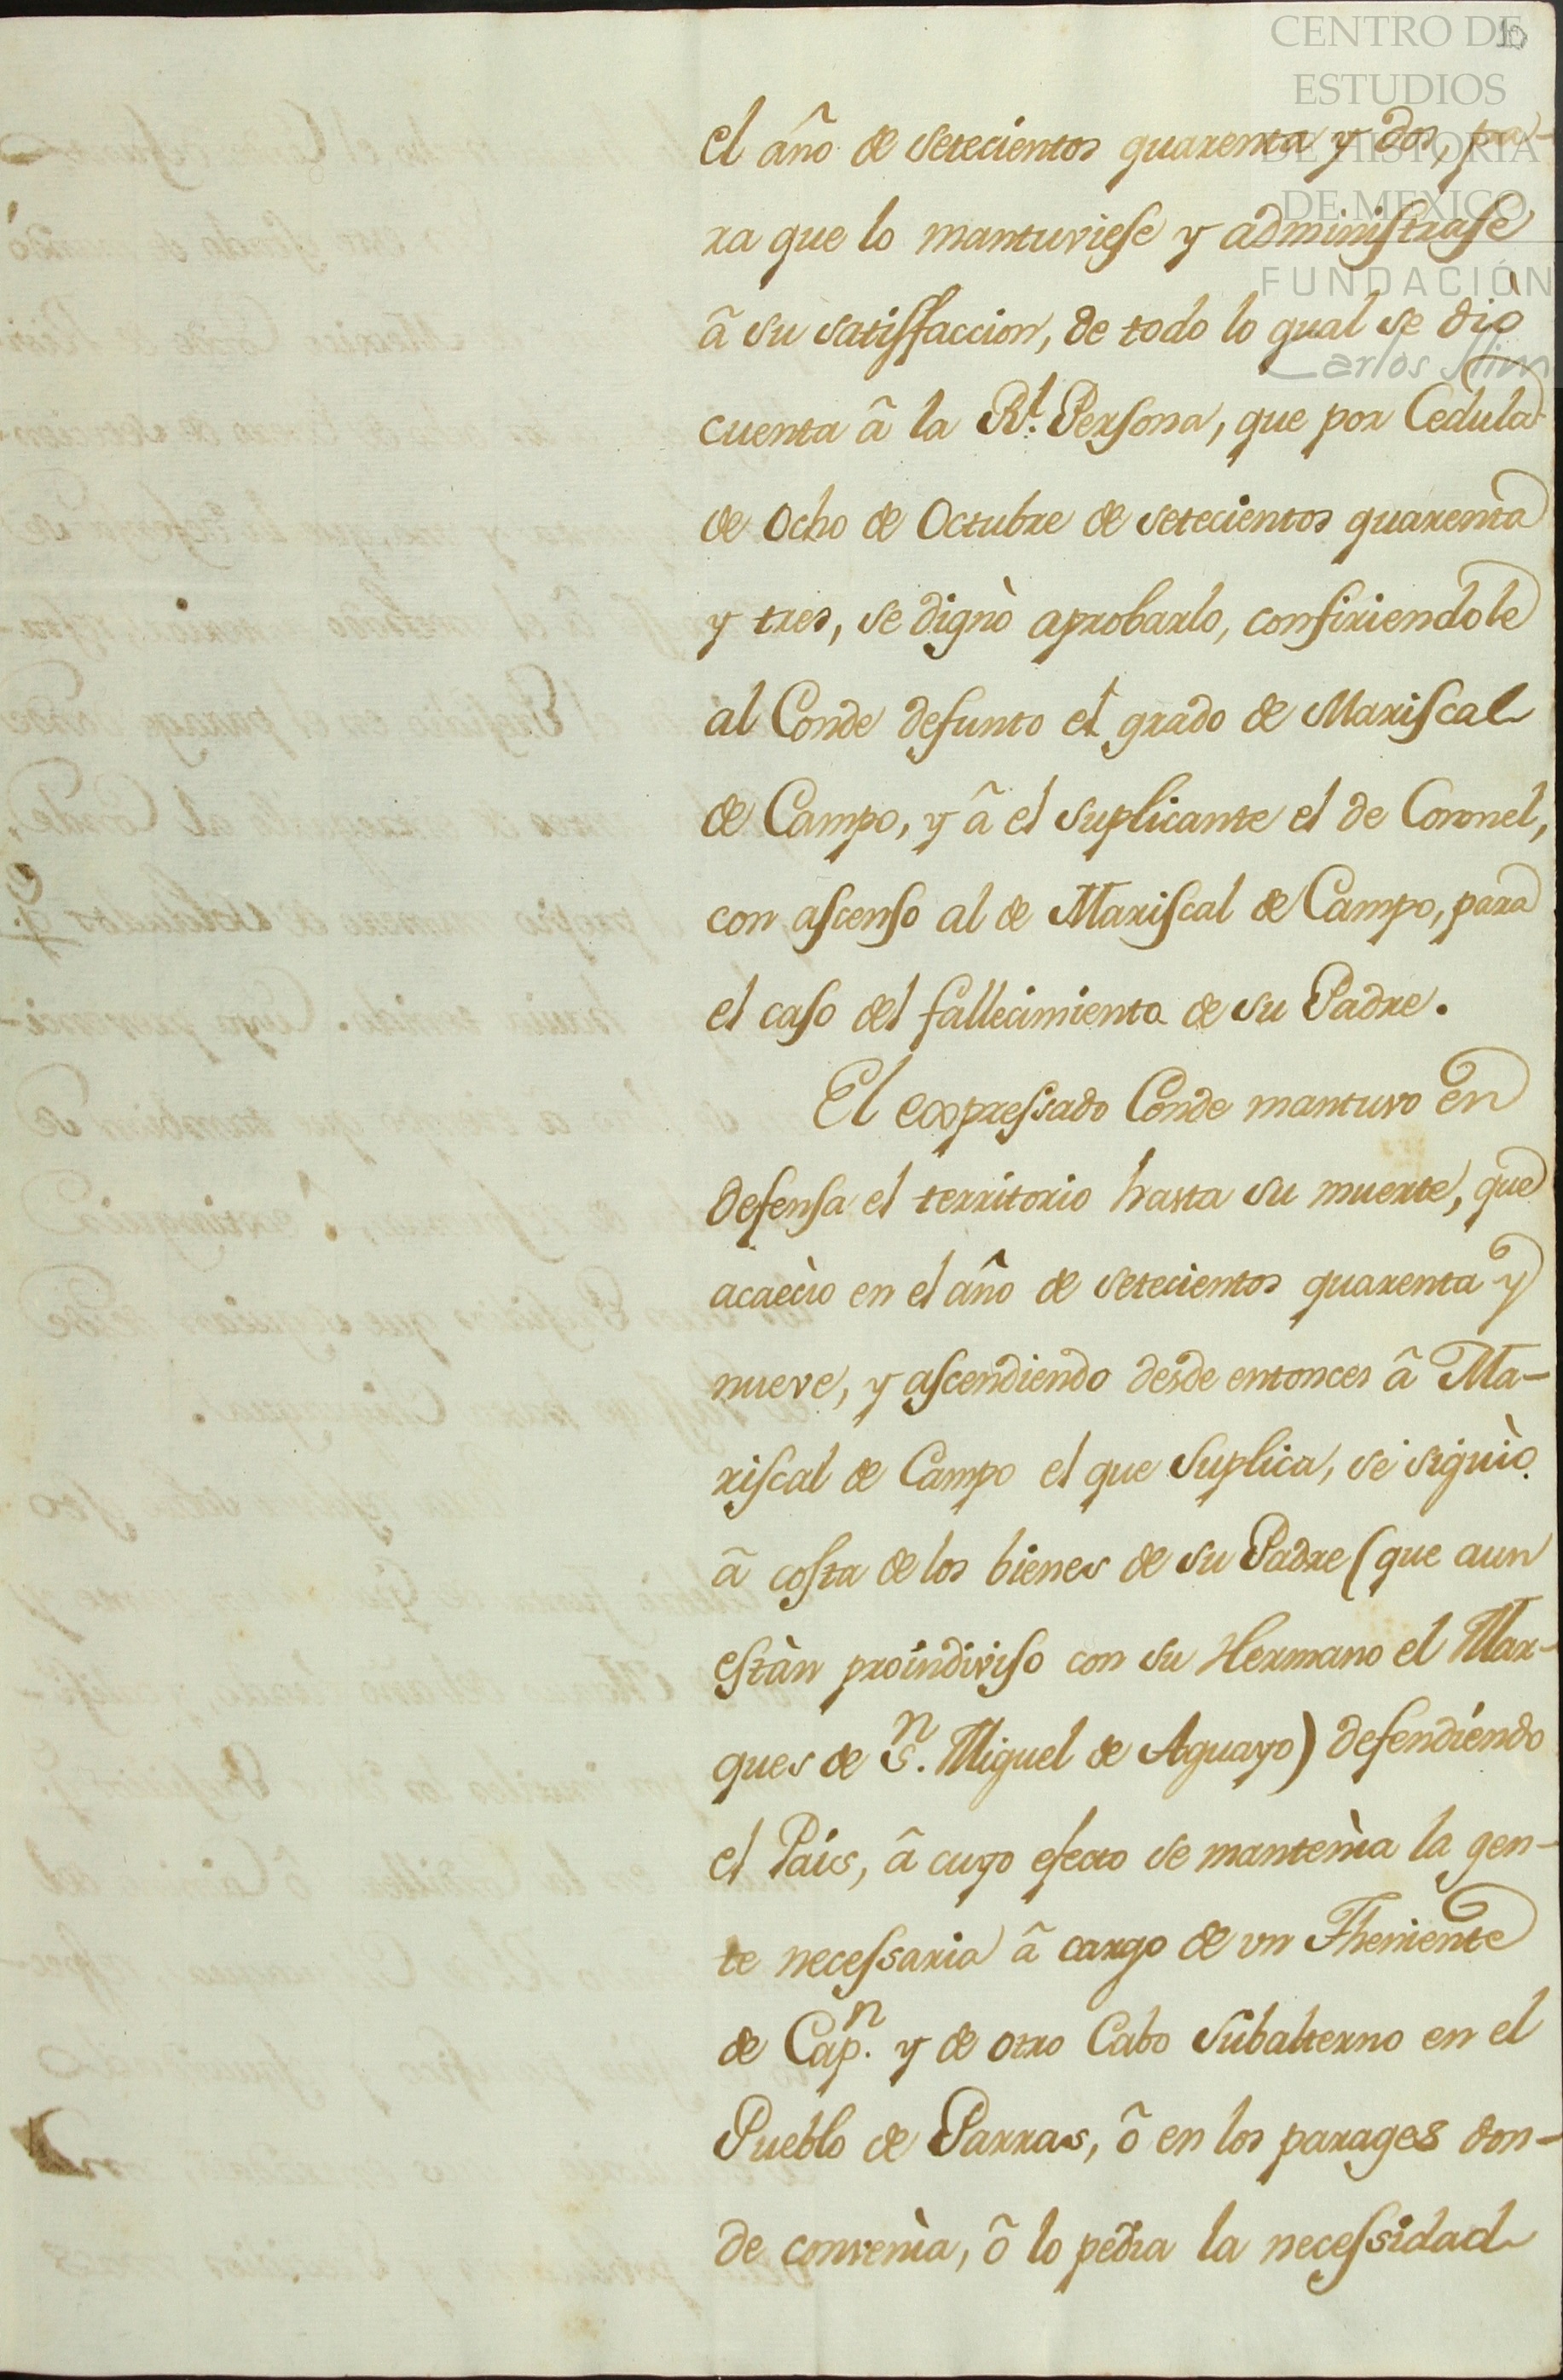 CENTRO DE
ESTUDIOS
DE HISTORIA
DE MEXICO
FUNDACIÓN
Carlos Slim
el año de setecientos quarenta y dos, pa-
ra que lo mantuviese y administrase
â su satisfaccion, de todo lo qual se diò
cuenta â la Rl. Persona, que por Cedula
de Ocho de Octubre de setecientos quarenta
y tres, se dignò aprobarlo, confiriendole
al Conde defunto el grado de Mariscal
de Campo, y â el suplicante el de Coronel,
con ascenso al de Mariscal de Campo, para
el caso del fallecimiento de su Padre.
El expressado Conde mantuvo en
defensa el territorio hasta su muerte, que
acaeciò en el año de setecientos quarenta y
nueve, y ascendiendo desde entonces â Ma-
riscal de Campo el que suplica, se siguiò
â costa de los bienes de su Padre (que aun
estàn proindiviso con su Hermano el Mar-
ques de Sn. Miguel de Aguayo) defendiendo
el País, â cuyo efecto se mantenìa la gen-
te necessaria â cargo de vn Theniente
de Capn. y de otro Cabo subalterno en el
Pueblo de Parras, ô en los parages don-
de convenìa, ô lo pedìa la necessidad